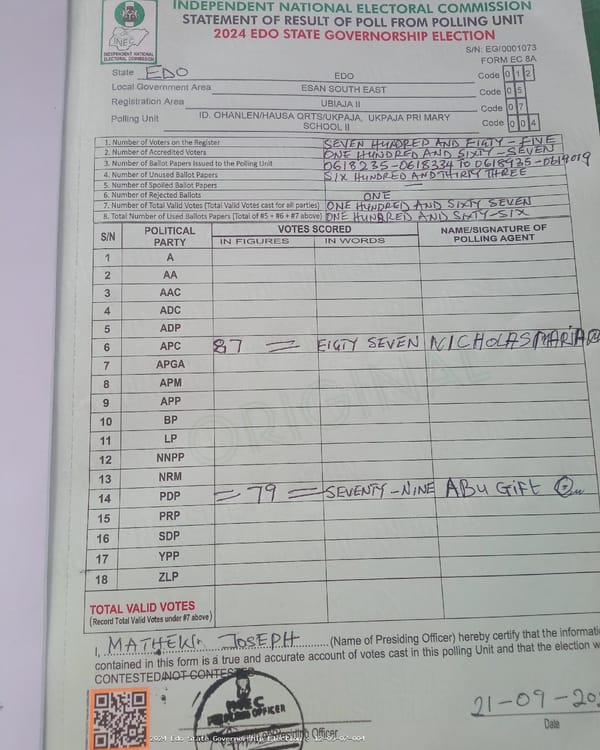 INDEPENDENT NATIONAL ELECTORAL COMMISSION
STATEMENT OF RESULT OF POLL FROM POLLING UNIT
2024 EDO STATE GOVERNORSHIP ELECTION
INEC
INDEPENDENT NATIONAL
ELECTORAL COMMISSION
S/N: EG/0001073
FORM EC 8A
State EDO EDO Code 0 1 2
Local Government Area ESAN SOUTH EAST Code 0 5
Registration Area UBIAJA II Code 0 7
Polling Unit ID. OHANLEN/HAUSA QRTS/UKPAJA, UKPAJA PRI MARY SCHOOL II Code 0 0 4
1. Number of Voters on the Register SEVEN HUNDRED AND EIGTY-FIVE
2. Number of Accredited Voters ONE HUNDRED AND SIXTY-SEVEN
3. Number of Ballot Papers Issued to the Polling Unit 0618235-0618334 TO 0618435-0619019
4. Number of Unused Ballot Papers SIX HUNDRED AND THIRTY THREE
5. Number of Spoiled Ballot Papers —
6. Number of Rejected Ballots ONE
7. Number of Total Valid Votes (Total Valid Votes cast for all parties) ONE HUNDRED AND SIXTY SEVEN
8. Total Number of Used Ballots Papers (Total of #5 + #6 + #7 above) ONE HUNDRED AND SIXTY-SIX
S/N POLITICAL PARTY VOTES SCORED NAME/SIGNATURE OF POLLING AGENT
IN FIGURES IN WORDS
1 A
2 AA
3 AAC
4 ADC
5 ADP
6 APC 87 = EIGTY SEVEN NICHOLAS MARIA
7 APGA
8 APM
9 APP
10 BP
11 LP
12 NNPP
13 NRM
14 PDP = 79 = SEVENTY-NINE ABU GIFT
15 PRP
16 SDP
17 YPP
18 ZLP
ORIGINAL
TOTAL VALID VOTES
(Record Total Valid Votes under #7 above)
I, MATHEW JOSEPH (Name of Presiding Officer) hereby certify that the informati
contained in this form is a true and accurate account of votes cast in this polling Unit and that the election w
CONTESTED/NOT CONTESTED
INEC
PRESIDING OFFICER
Presiding Officer
21-09-202
Date
2024 Edo State Governorship Election